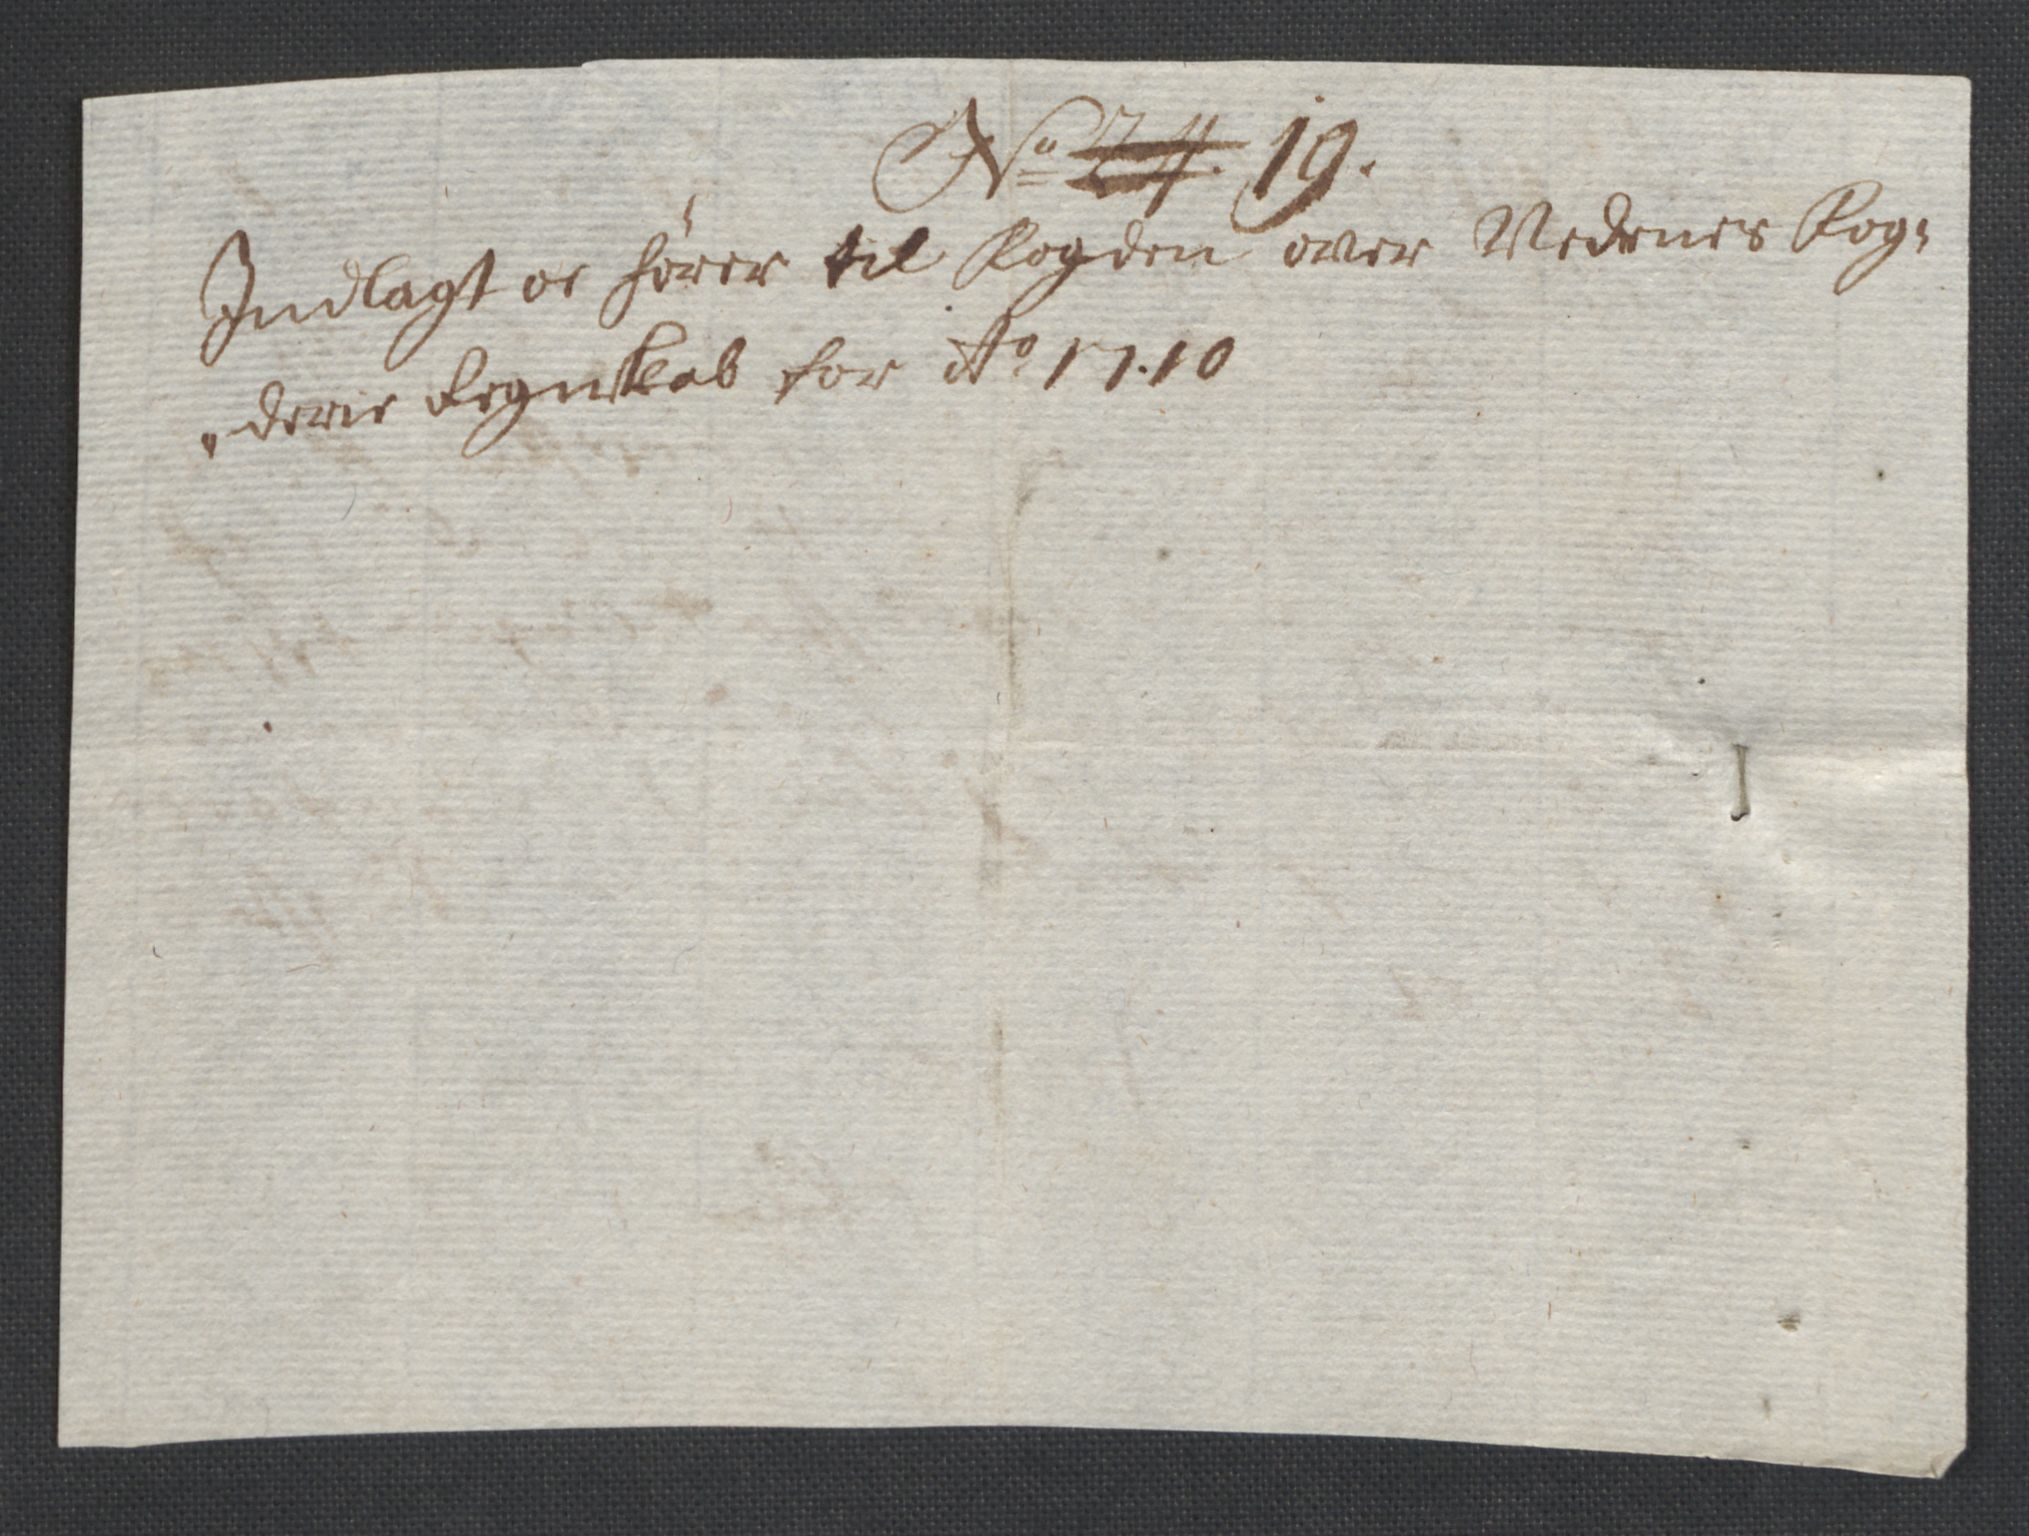 No 24. 19.
Indlagt oc hører til Fogden over Nedenes Fog-
-derie Regnskab for Ao 1710